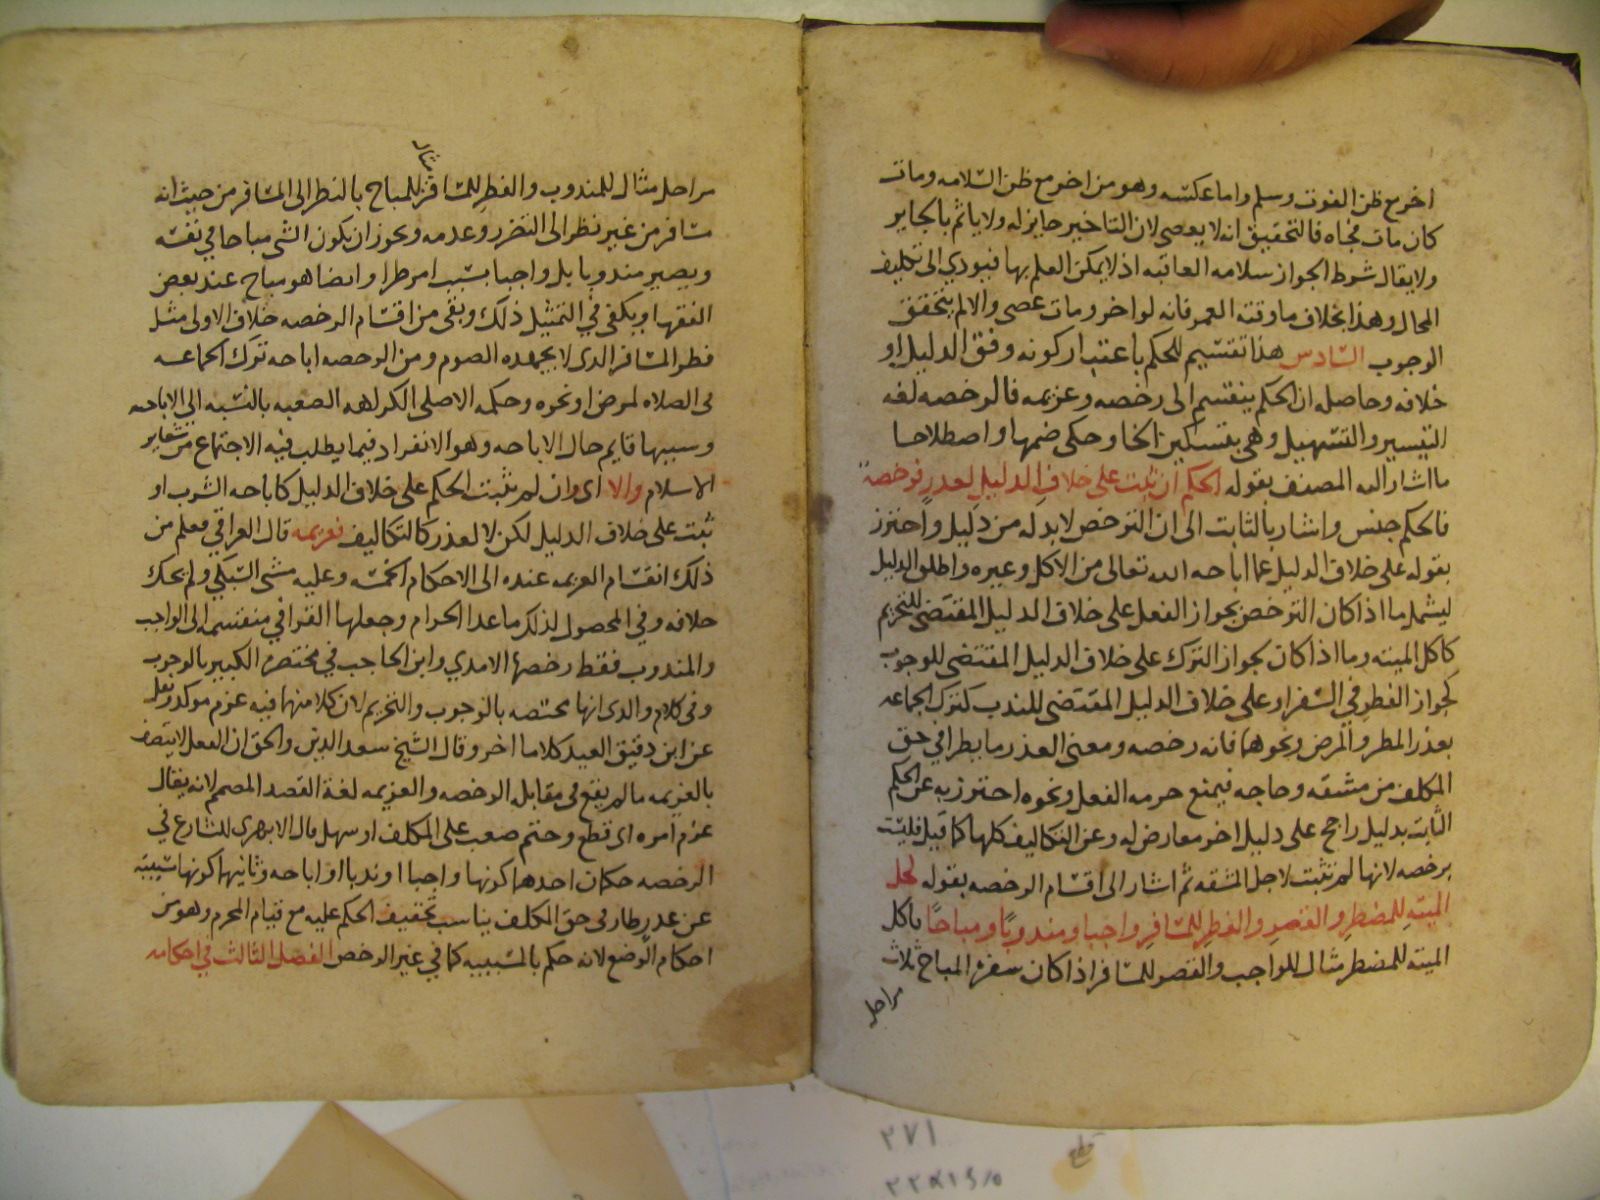 اخر مع ظن الفوت وسلم واما عكسه وهو من اخر مع ظن السلامه ومات
كان مات فجاه فالتحقيق انه لا يعصى لان التاخير جايز له ولا ياثم بالجايز
ولا يقال شرط الجواز سلامه العاقبه اذ لا يمكن العلم بها فيودي الى تكليف
المحال وهذا بخلاف ما وقته العمر فانه لو اخر ومات عصى والا لم يتحقق
الوجوب السادس هذا تقسيم للحكم باعتبار كونه وفق الدليل او
خلافه وحاصله ان الحكم ينقسم الى رخصه وعزيمه فالرخصه لغه
التيسير والتسهيل وهي بتسكين الخا وحكى ضمها واصطلاحا
ما اشار اليه المصنف بقوله الحكم ان ثبت على خلاف الدليل لعذر فرخصة
فالحكم جنس واشار بالثابت الى ان الترخص لا بد له من دليل واحترز
بقوله على خلاف الدليل عما اباحه الله تعالى من الاكل وغيره واطلق الدليل
ليشمل ما اذا كان الترخص بجواز الفعل على خلاف الدليل المقتضى للتحريم
كاكل الميته وما اذا كان بجواز الترك على خلاف الدليل المقتضى للوجوب
كجواز الفطر في السفر او على خلاف الدليل المقتضى للندب كترك الجماعه
بعذر المطر والمرض ونحوهما فانه رخصه ومعنى العذر ما يطرا في حق
المكلف من مشقه وحاجه فيمنع حرمه الفعل ونحوه احترز به عن الحكم
الثابت بدليل راجح على دليل اخر معارض له وعن التكاليف كلها كما قيل فليست
برخصه لانها لم تثبت لاجل المشقه ثم اشار الى اقسام الرخصه بقوله كحل
الميتة للمضطر والقصر والفطر للمسافر واجبا ومندوبًا ومباحًا باكل
الميته للمضطر مثال للواجب والقصر للمسافر اذا كان سفره المباح ثلاث
مراحل
مثال
مراحل مثال للمندوب والفطر للمسافر للمباح بالنظر الى المسافر من حيث انه
مسافر من غير نظر الى التضرر وعدمه ويجوز ان يكون الشى مباحا في نفسه
ويصير مندوبا بل واجبا بسبب امر طرا وايضا هو مباح عند بعض
الفقها ويكفى في التمثيل ذلك وبقى من اقسام الرخصه خلاف الاولى مثل
فطر المسافر الذى لا يجهده الصوم ومن الرخصه اباحه ترك الجماعه
فى الصلاه لمرض او نحوه وحكمه الاصلى الكراهه الصعبه بالنسبه الى الاباحه
وسببها قايم حال الاباحه وهو الانفراد فيما يطلب فيه الاجتماع من شعاير
الاسلام والا اى وان لم يثبت الحكم على خلاف الدليل كاباحه الشرب او
ثبت على خلاف الدليل لكن لا لعذر كالتكاليف فعزيمه قال العراقي فعلم من
ذلك انقسام العزيمه عنده الى الاحكام الخمسه وعليه مشى السبكي ولم يحك
خلافه وفي المحصول لذلك ما عدا الحرام وجعلها القرافي منقسمه الى الواجب
والمندوب فقط رخصها الامدي وابن الحاجب في مختصره الكبير بالوجوب
وفى كلام والدى انها مختصه بالوجوب والتحريم لان كلا منهما فيه عزم موكد ونقل
عن ابن دقيق العيد كلاما اخر وقال الشيخ سعد الدين والحق ان الفعل لا يتصف
بالعزيمه ما لم يقع فى مقابله الرخصه والعزيمه لغة القصد المصمم لانه يقال
عزم امره اى قطع وحتم صعب على المكلف او سهل قال الابهرى للشارع في
الرخصه حكمان احدهما كونها واجبا او ندبا او اباحه وثانيهما كونها مسببه
عن عذر طار فى حق المكلف يناسب تخفيف الحكم عليه مع قيام المحرم وهو من
احكام الوضع لانه حكم بالمسببيه كما في غير الرخص الفصل الثالث في احكامه
٢٧١